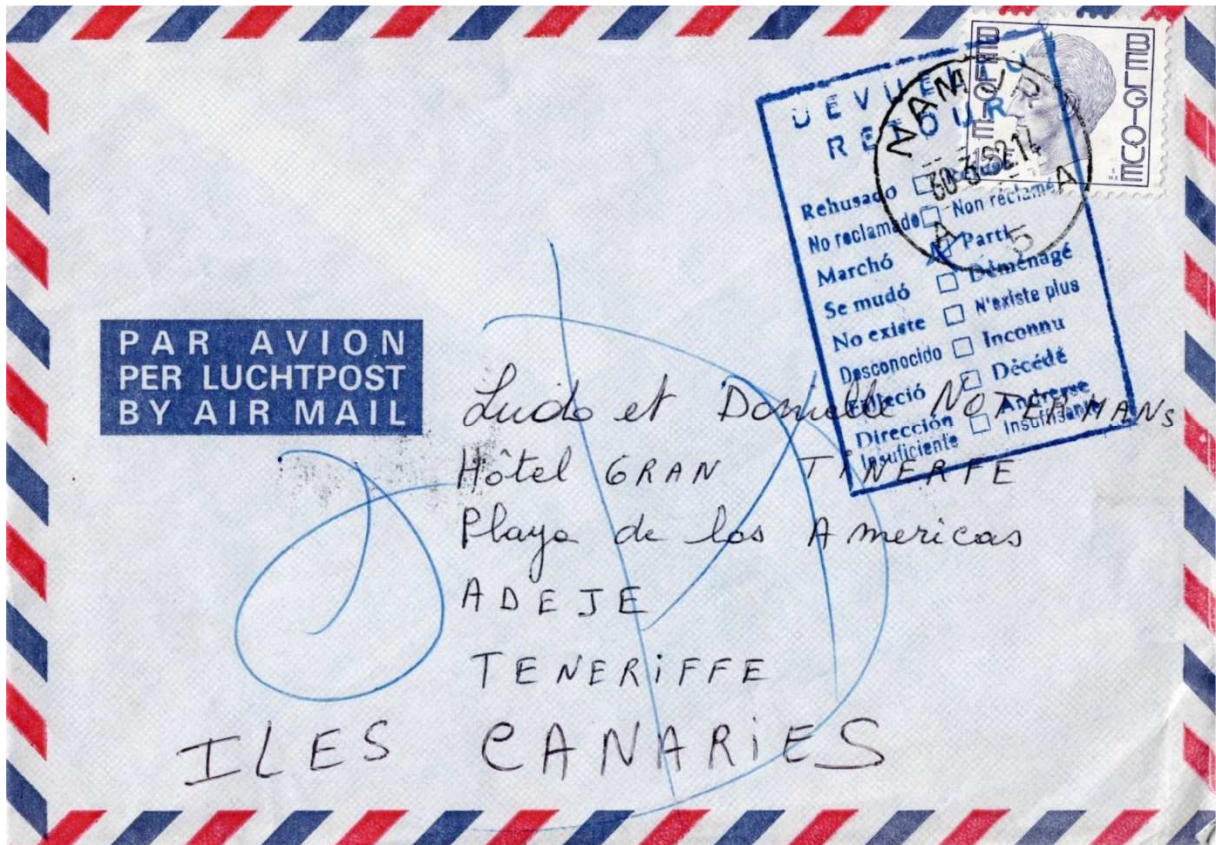 BELGIQUE
BELGIE
DEVUELTO
RETOUR
NAMUR
A A
5
Rehusado Refusé
No reclamado Non réclamé
Marchó Parti
Se mudó Déménagé
No existe N'existe plus
Desconocido Inconnu
Falleció Décédé
Dirección
Insuficiente Insuffisante
PAR AVION
PER LUCHTPOST
BY AIR MAIL
Ludo et Danielle NOTERMANS
Hôtel GRAN TINERFE
Playa de los Americas
ADEJE
TENERiFFE
ILES CANARiES